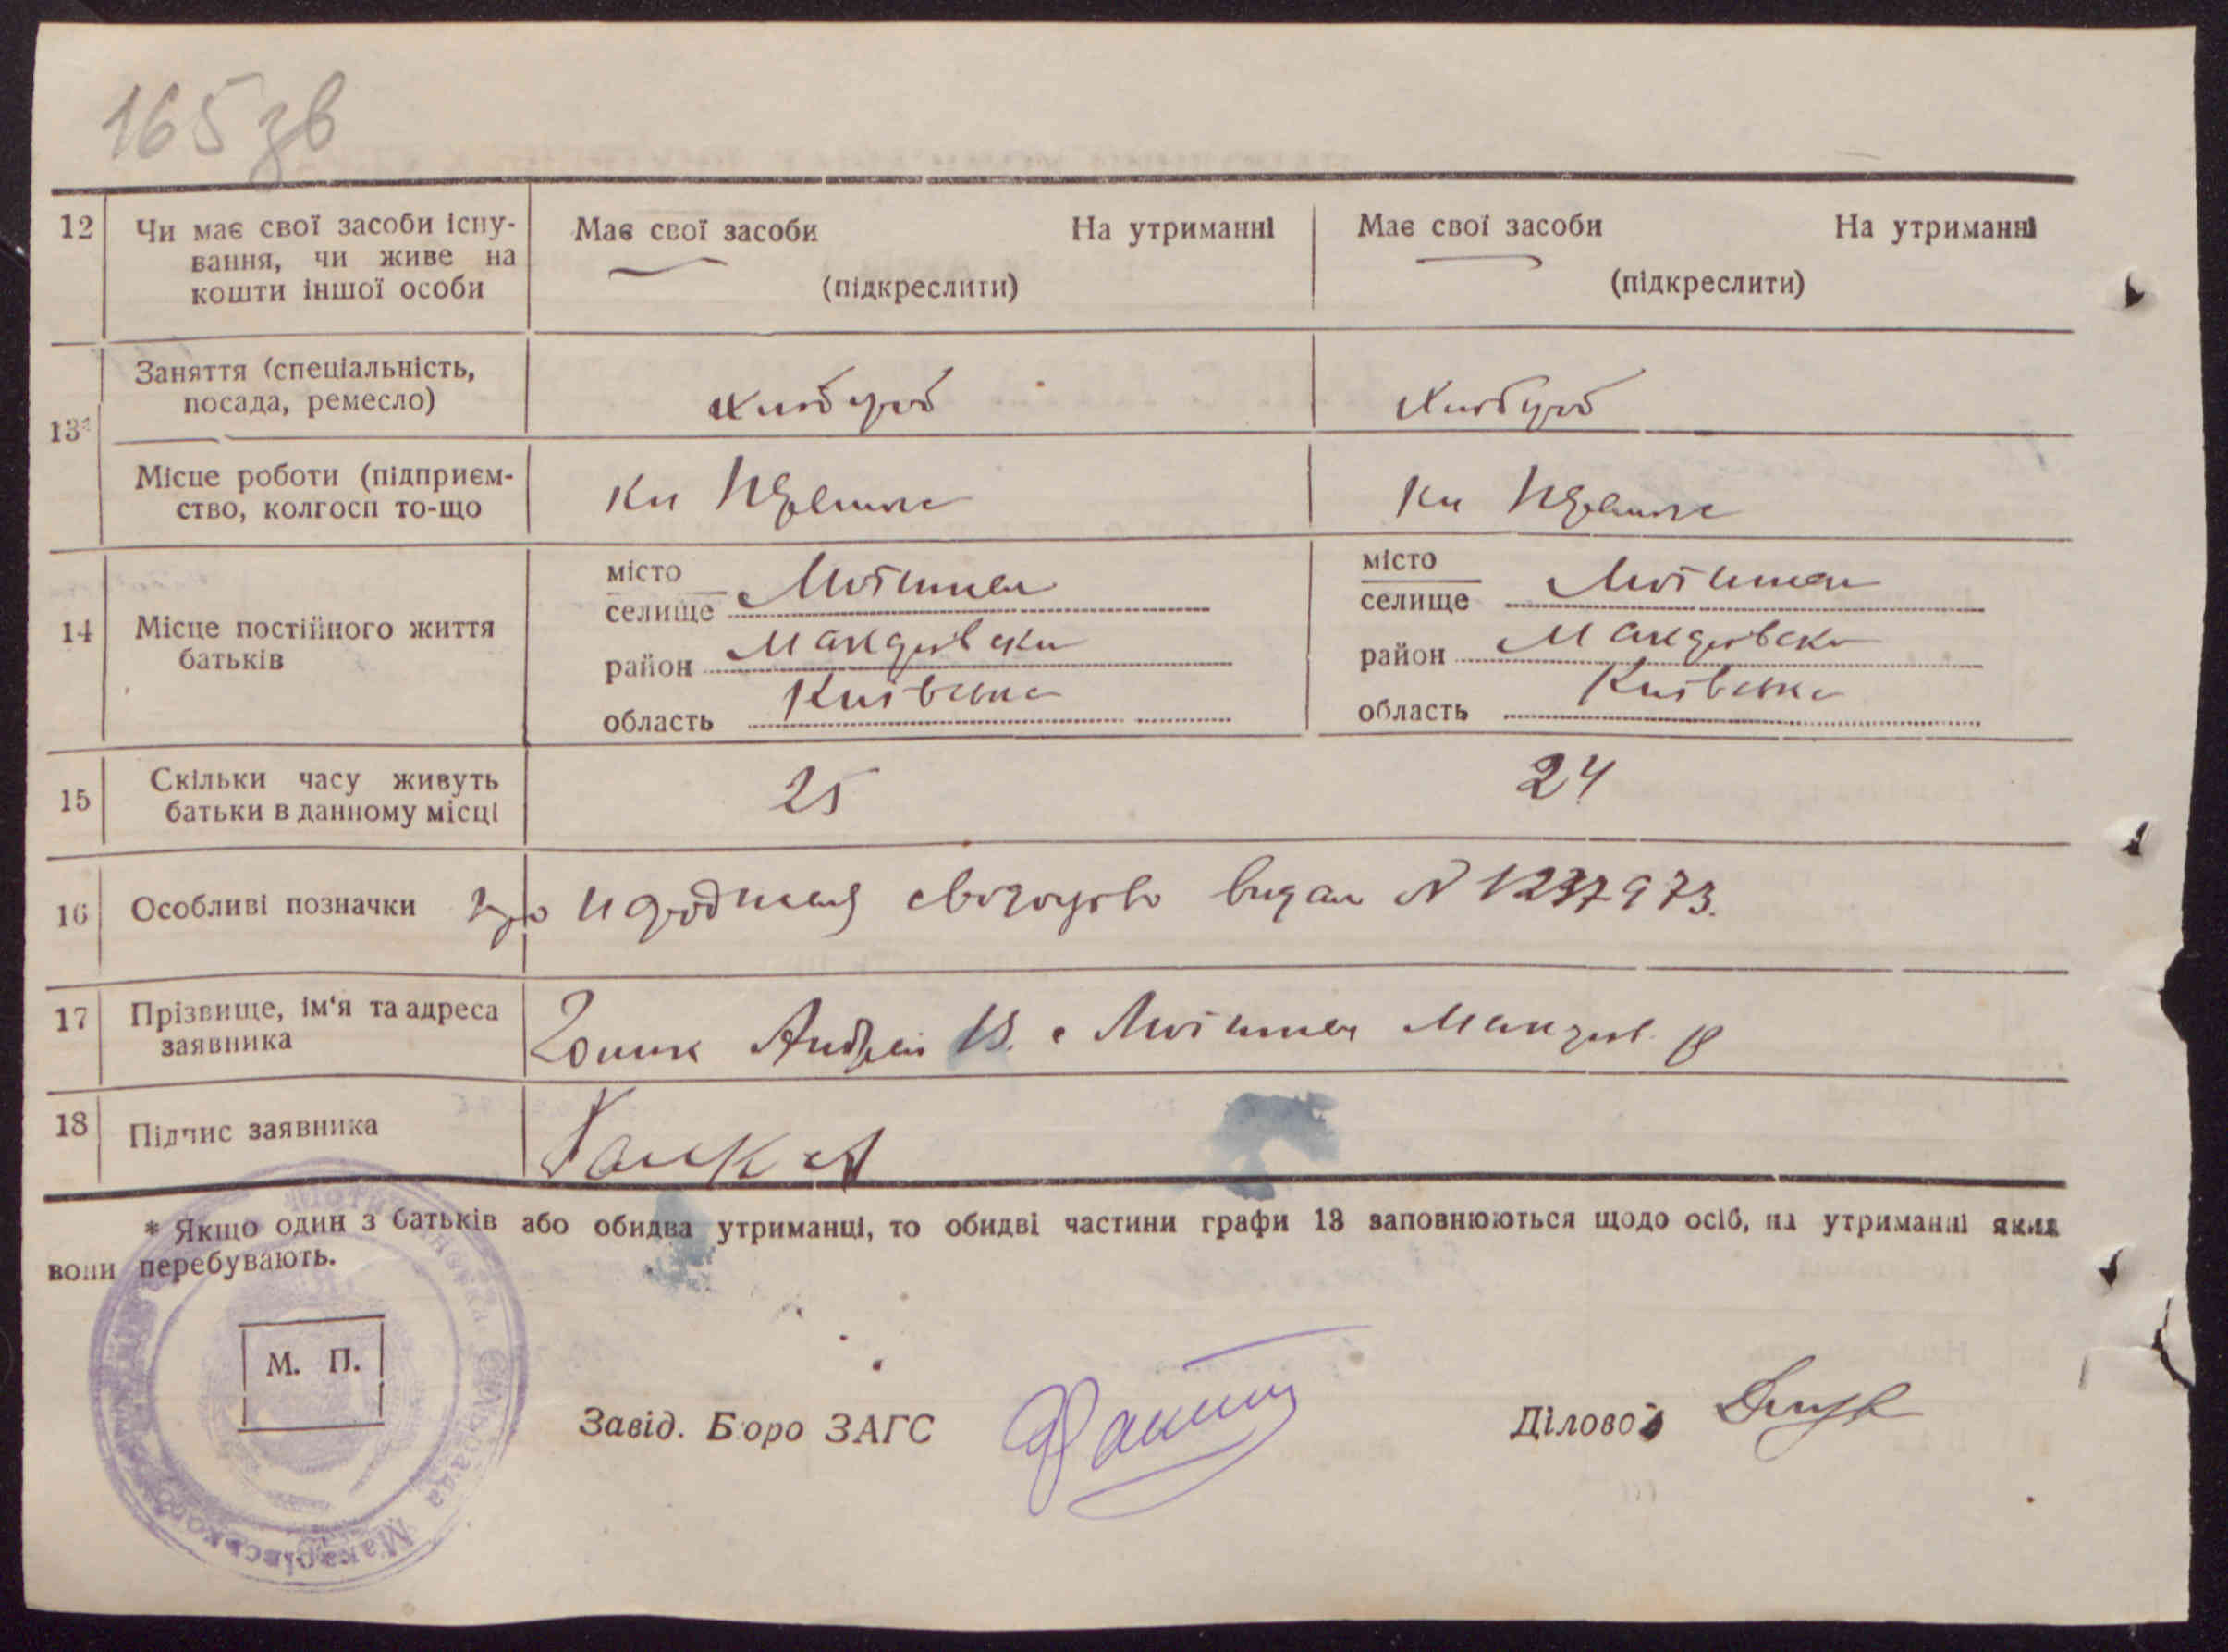 165 зв
12 Чи має свої засоби існу-
вання, чи живе на
кошти іншої особи
Має свої засоби На утриманні
(підкреслити)
Має свої засоби На утриманні
(підкреслити)
13* Заняття (спеціальність,
посада, ремесло)
хлібороб
хлібороб
Місце роботи (підприєм-
ство, колгосп то-що
14 Місце постійного життя
батьків
місто
селище
район Макарівськи
область Київська
місто
селище
район Макарівськи
область Київська
15 Скільки часу живуть
батьки в данному місці
25
24
16 Особливі позначки про народження свідоцтво видан № 1237973.
17 Прізвище, ім'я та адреса
заявника
Андрей
18 Підпис заявника
* Якщо один з батьків або обидва утриманці, то обидві частини графи 13 заповнюються щодо осіб, на утриманні яких
вони перебувають.
М. П.
Завід. Бюро ЗАГС
Діловод
Макарівського